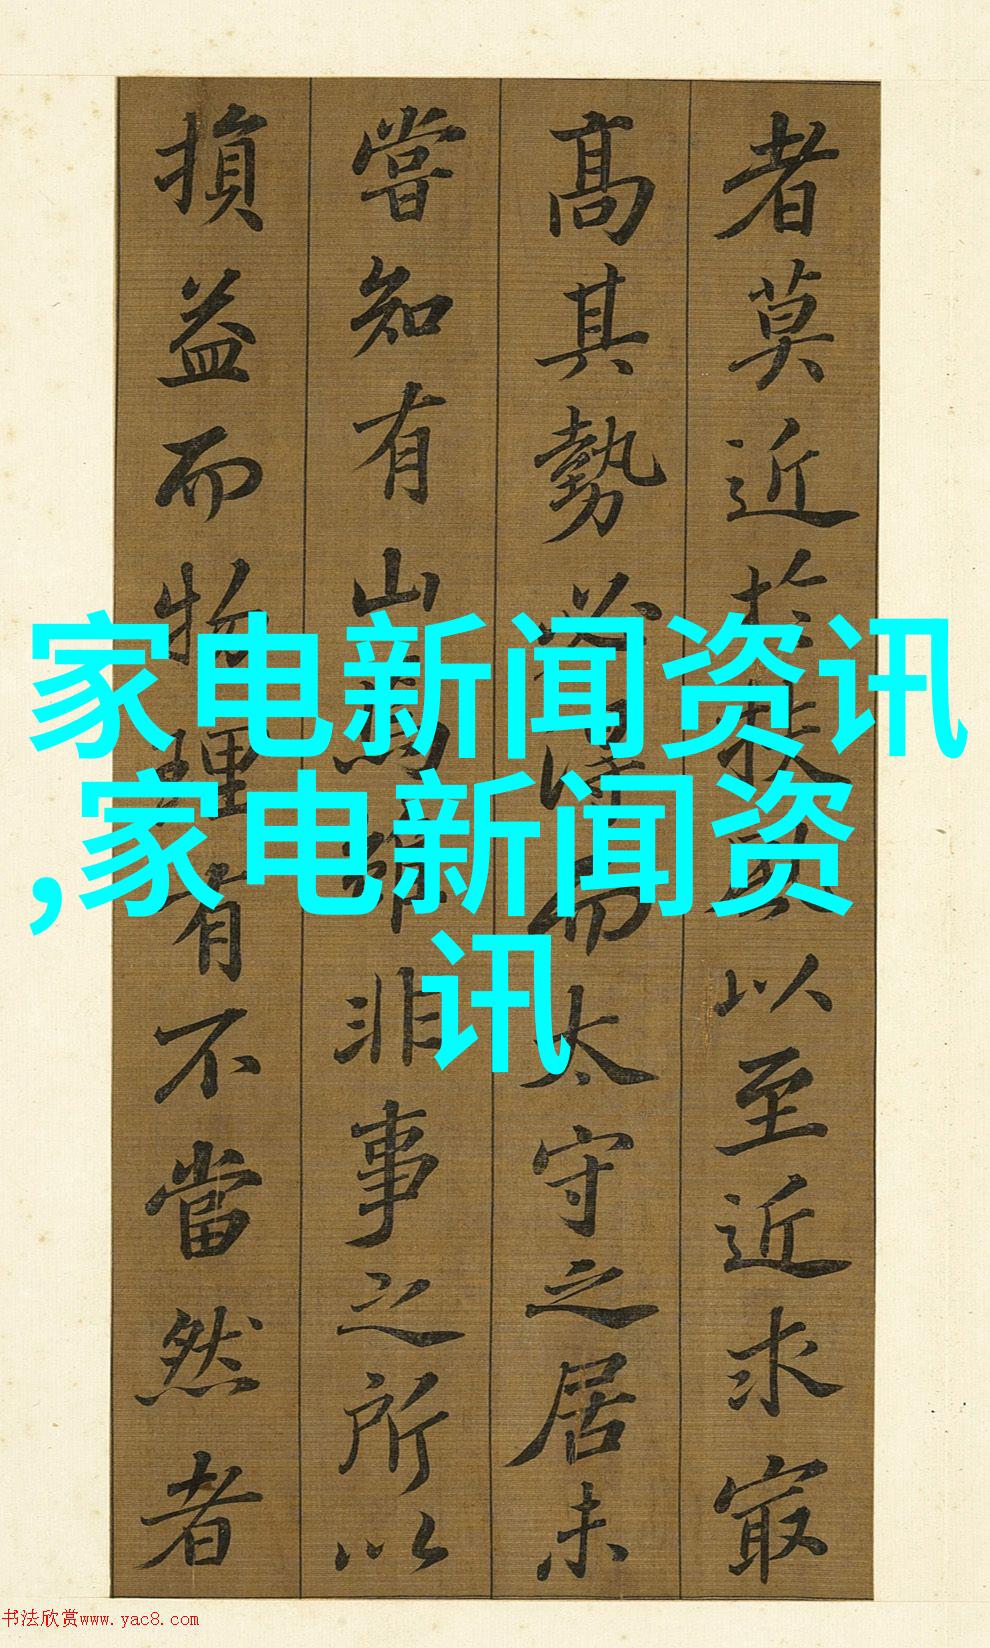 者莫近於扶風以至近求最
高其勢必得而太守之居未
嘗知有山焉雖非事之所以
損益而物理有不當然者
家电新闻资讯
,家电新闻资
讯
书法欣赏www.yac8.com